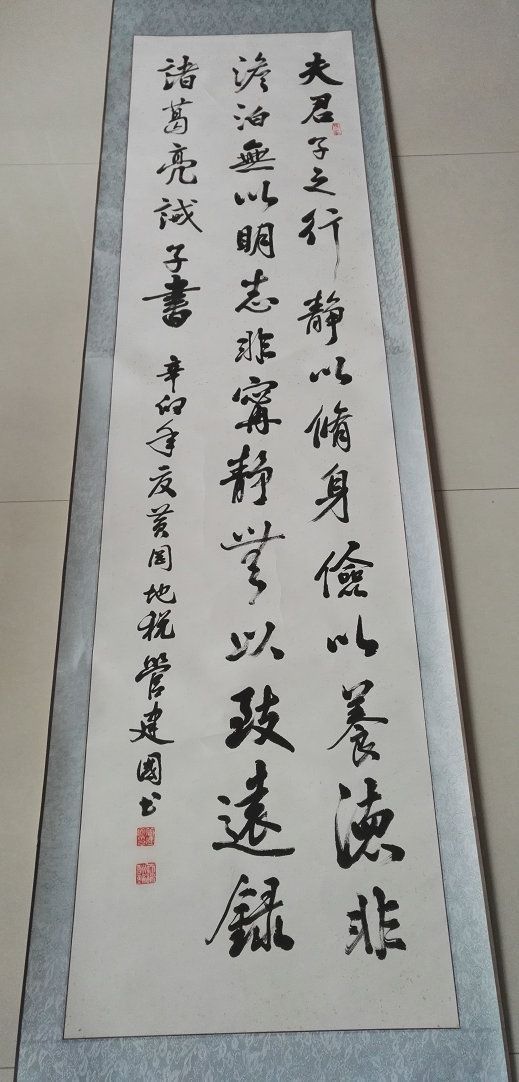 夫君子之行靜以脩身儉以養德非
澹泊無以明志非寧靜無以致遠錄
諸葛亮誡子書
辛卯年夏黄岡地税管建國书